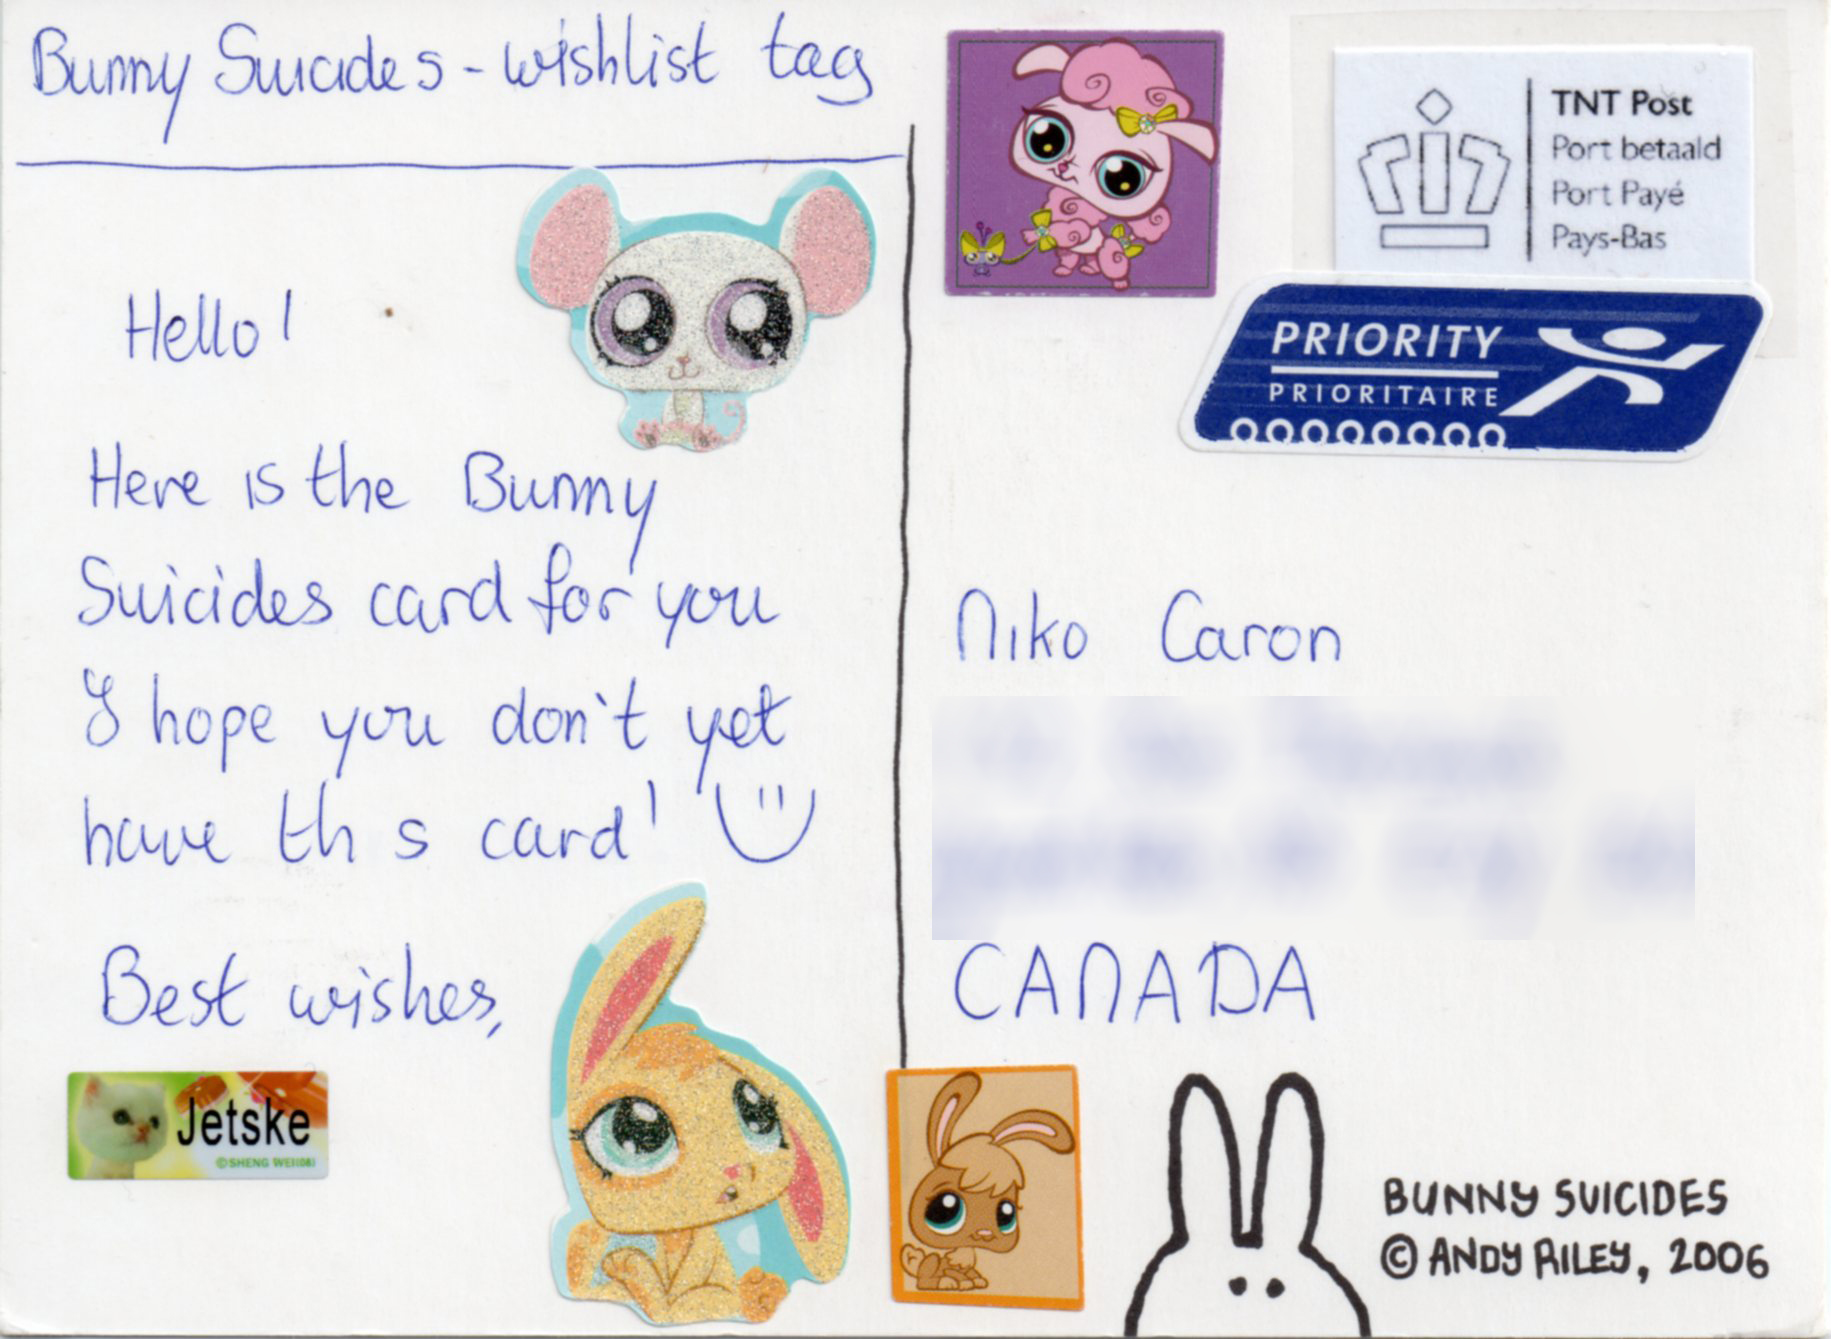 Bunny Suicides - wishlist tag
Hello!
Here is the Bunny
Suicides card for you
I hope you don't yet
have th s card!
Best wishes,
Jetske
©SHENG WEI(08)
TNT Post
Port betaald
Port Payé
Pays-Bas
PRIORITY
PRIORITAIRE
Niko Caron
CANADA
BUNNY SUICIDES
© ANDY RILEY, 2006